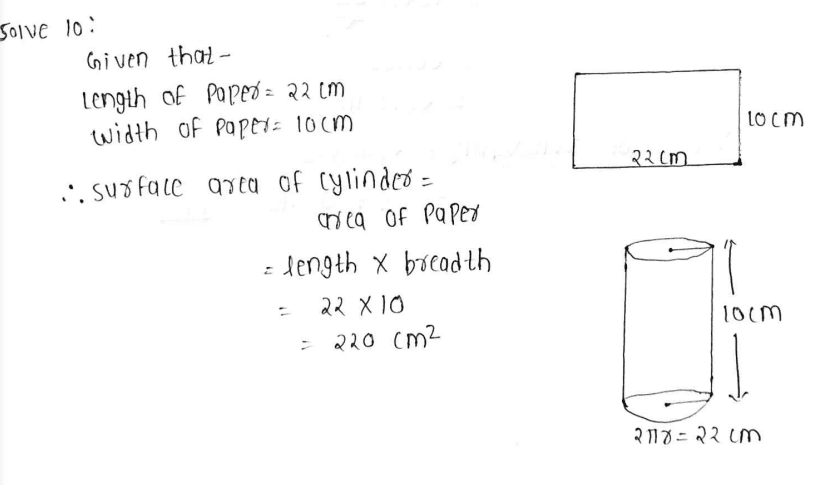 Solve 10:
Given that -
Length of Paper = 22 cm
Width of Paper = 10cm
10cm
22 cm
∴ surface area of cylinder =
area of Paper
= length × breadth
= 22 × 10
= 220 cm²
10cm
2πr = 22 cm